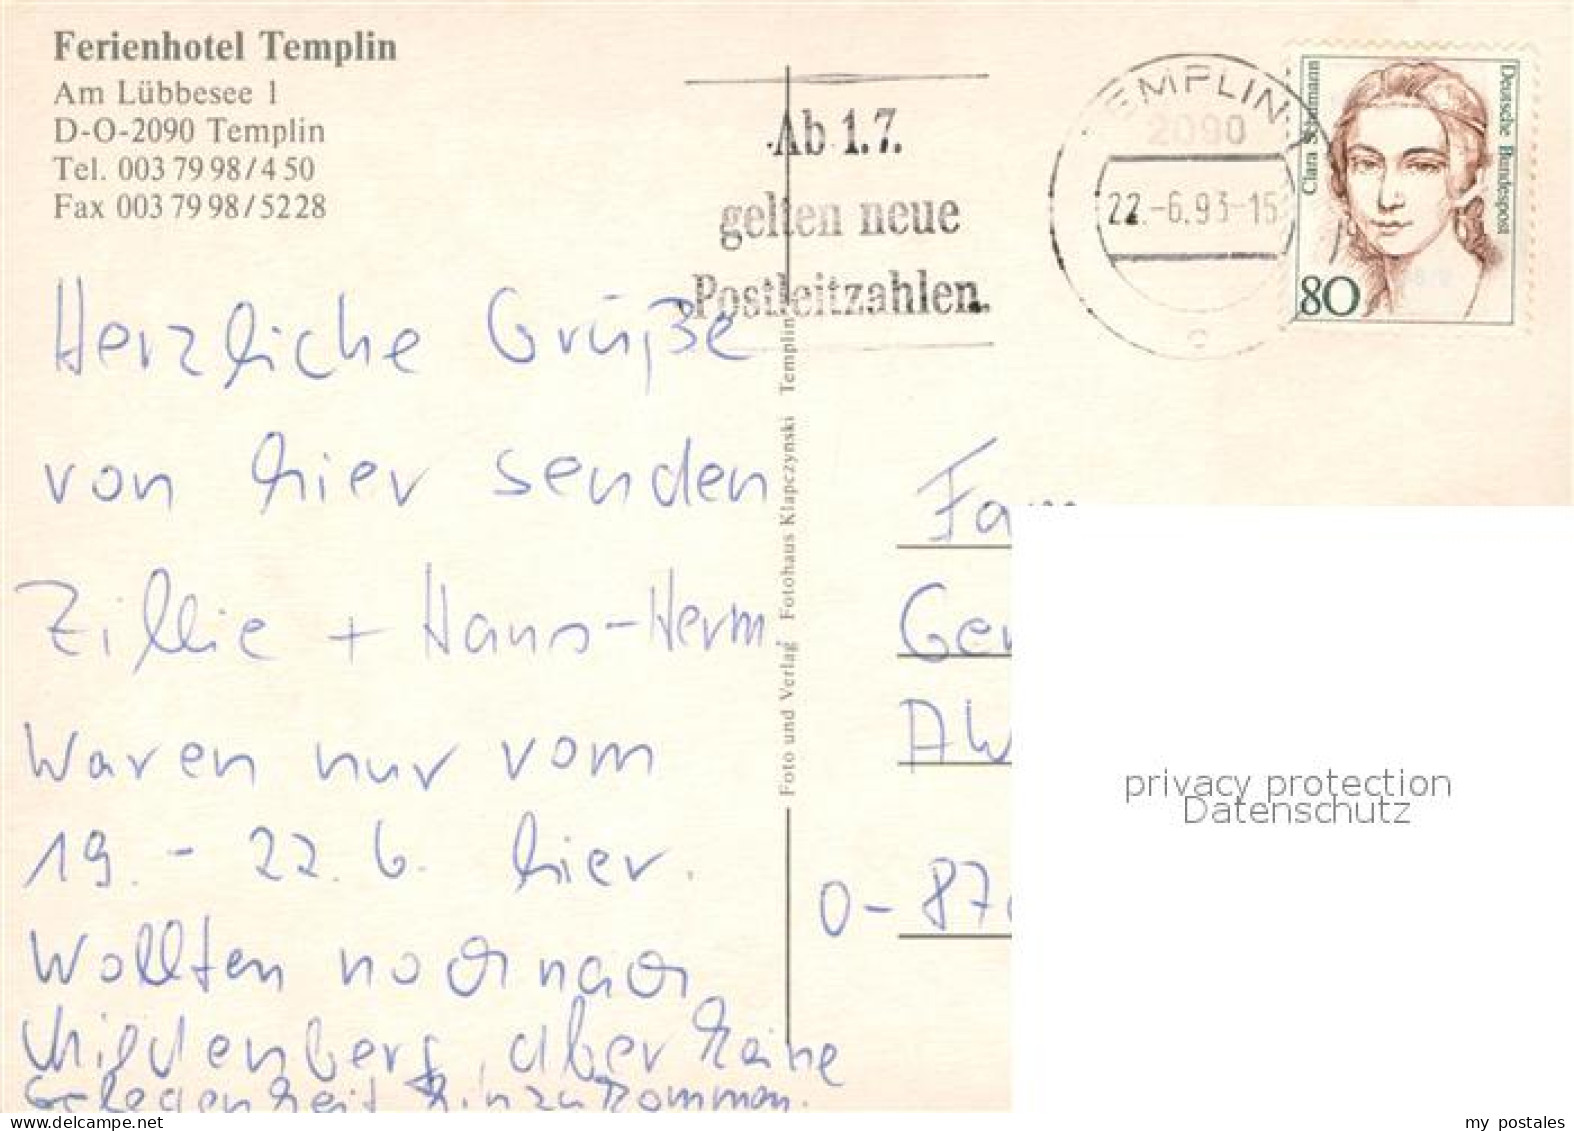 Ferienhotel Templin
Am Lübbesee 1
D-O-2090 Templin
Tel. 003 79 98/4 50
Fax 003 79 98/5228
Ab 1.7.
gelten neue
Postleitzahlen.
EMPLIN
2090
22.-6.93-15
c
Clara Schumann
Deutsche Bundespost
80
Herzliche Grüße
von hier senden
Zillie + Hans-Herm.
Waren nur vom
19. - 22. 6. hier.
Wollten noch nach
Mildenberg, aber keine
Gelegenheit hinzukommen.
Foto und Verlag Fotohaus Klapczynski Templin
Fam
Ger
AW
O- 87
privacy protection
Datenschutz
my postales